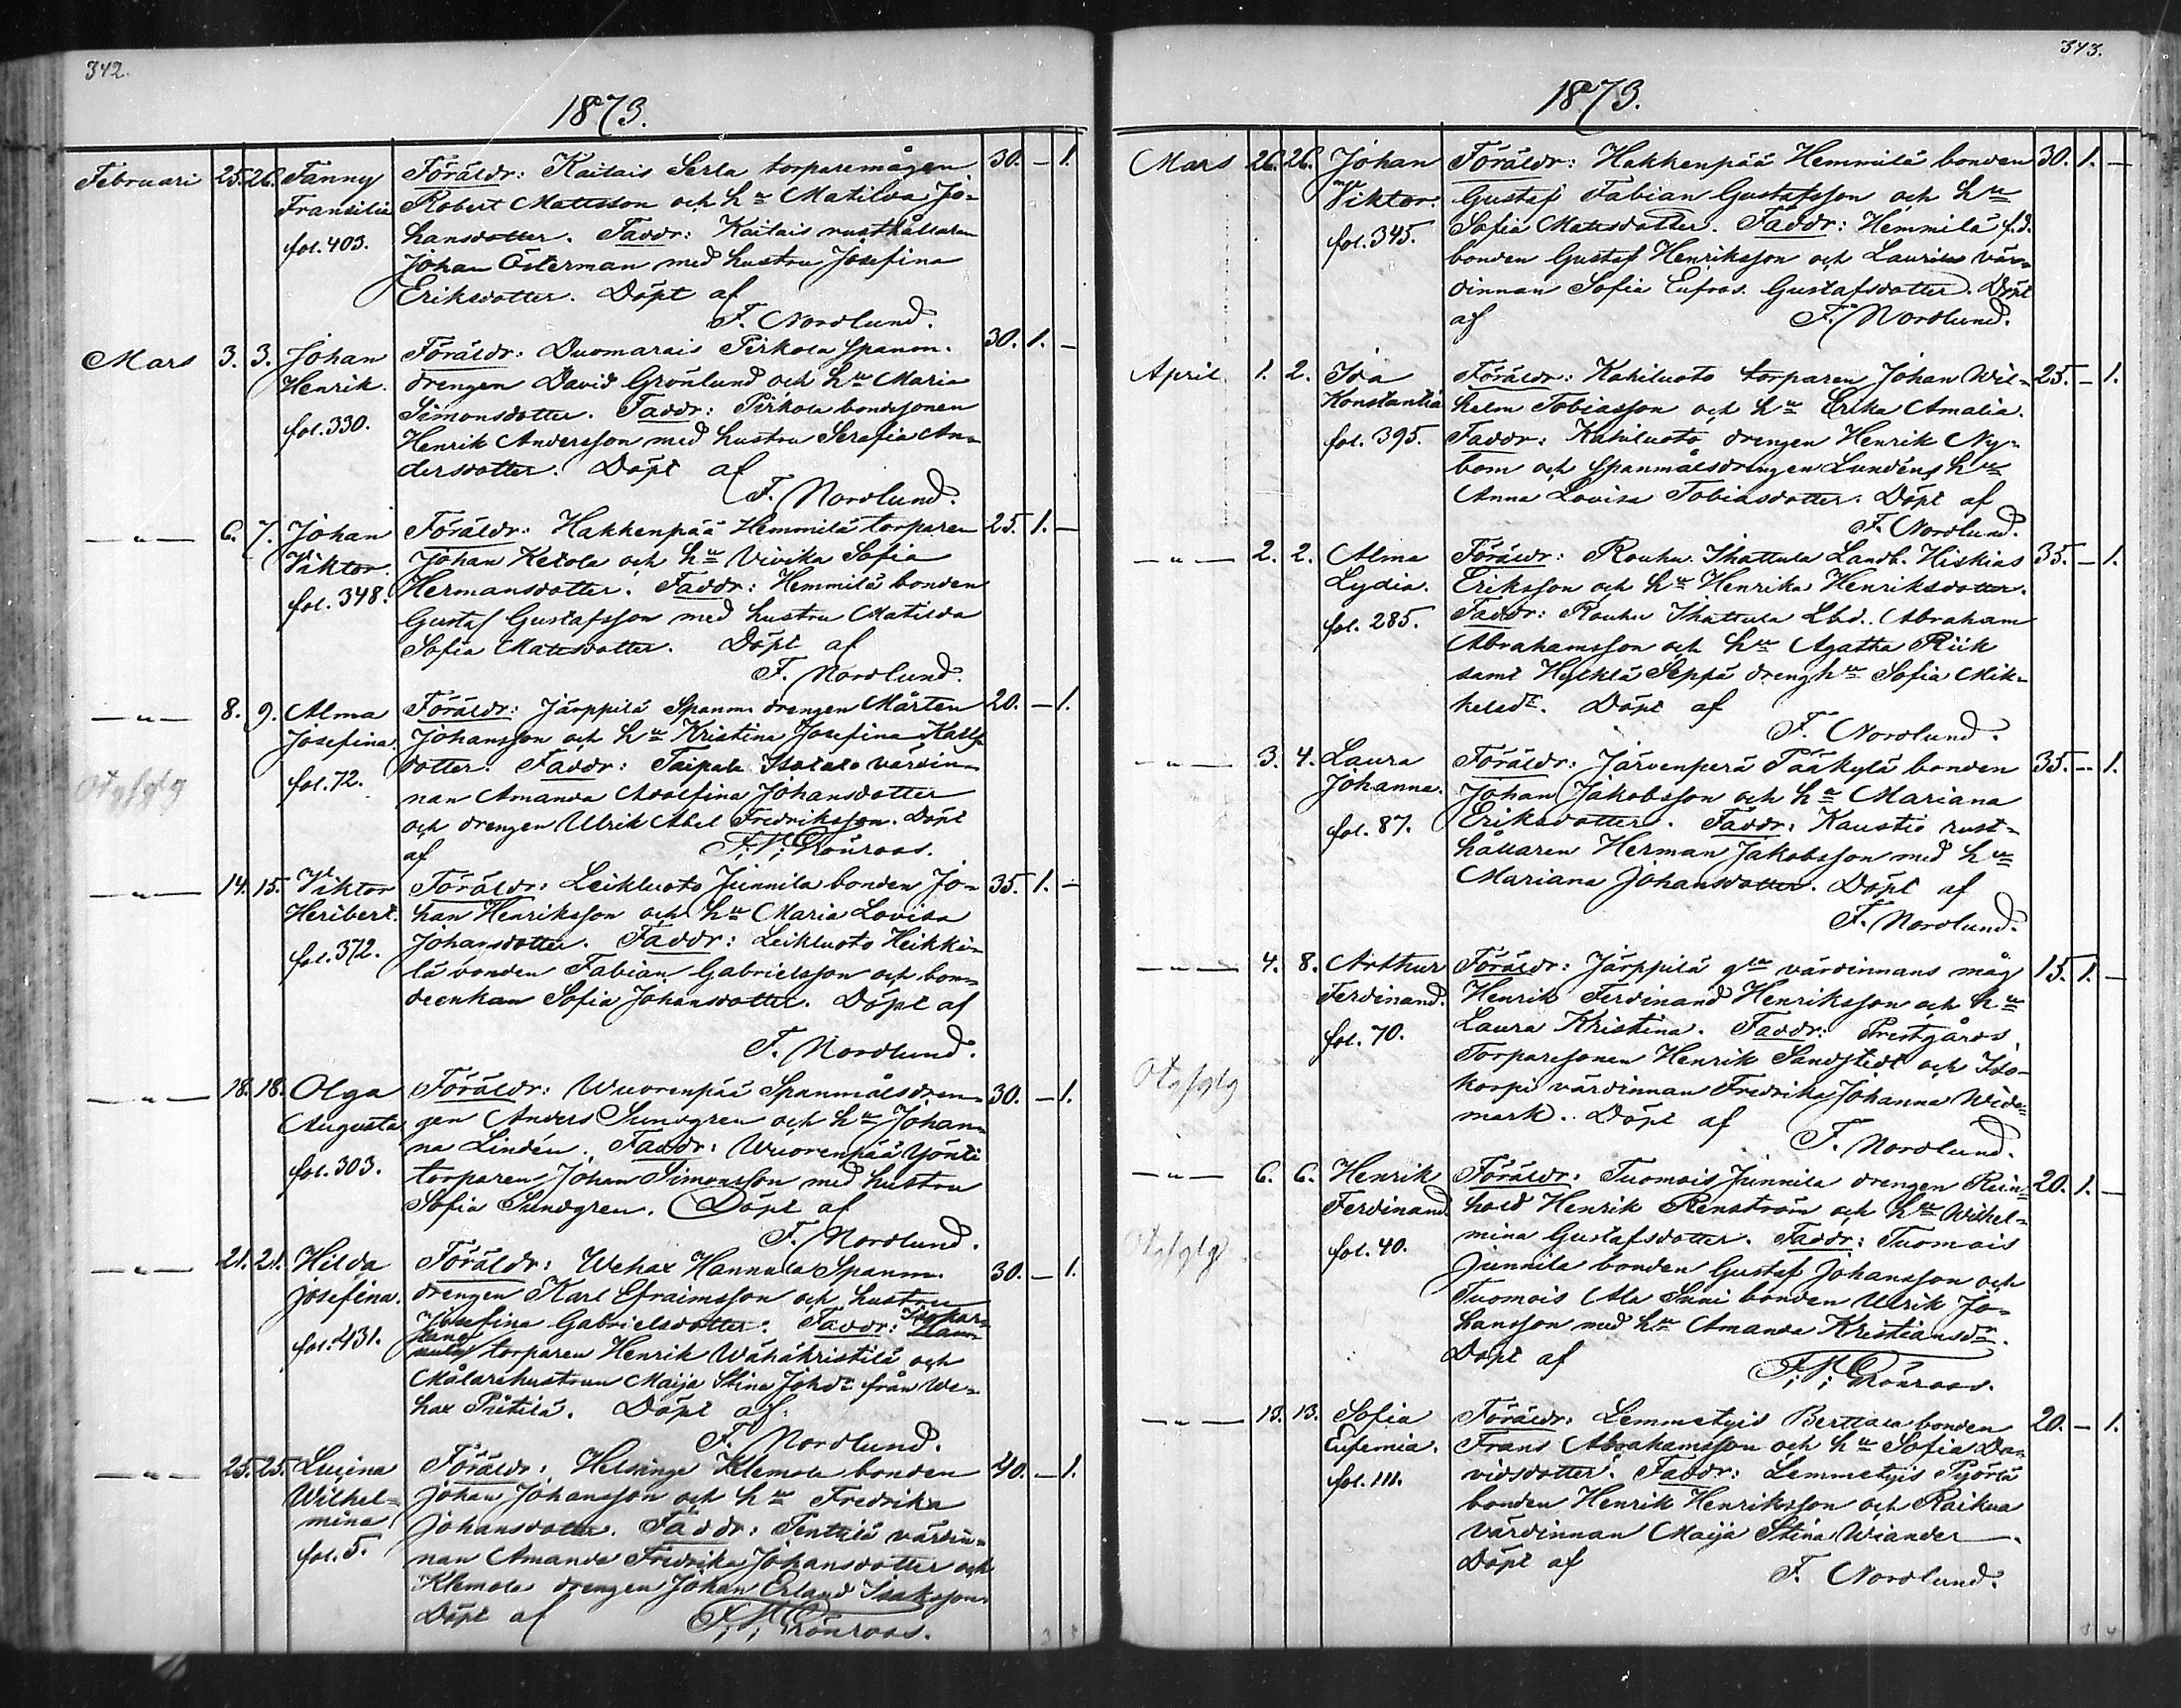 342.
1873.
Februari 25. 26. Fanny Föräldr: Kailais Serla torparemågen 30. — 1.
Fransilia Robert Mattsson och hu Matilda Jo-
fol. 403. hansdotter. Faddr: Kailais rusthållaren
Johan Österman med hustru Josefina
Eriksdotter. Döpt af
F. Nordlund.
Mars 3. 3. Johan Föräldr: Duomarais Pirkola spanm. 30. 1. —
Henrik. drengen David Grönlund och hu Maria
fol. 330. Simonsdotter. Faddr: Pirkola bondesonen
Henrik Andersson med hustru Serafia An-
dersdotter. Döpt af
F. Nordlund.
— " — 6. 7. Johan Föräldr: Hakkenpää Hemmilä torparen 25. 1. —
Viktor. Johan Ketola och hu Vivika Sofia
fol. 348. Hermansdotter. Faddr: Hemmilä bonden
Gustaf Gustafsson med hustru Matilda
Sofia Matsdotter. Döpt af
F. Nordlund.
— " — 8. 9. Alma Föräldr: Järppilä Spanm drengen Mårten 20. — 1.
Josefina. Johansson och hu Kristina Josefina Karls
fol. 72. dotter. Faddr: Taipale Isotalo värdin-
nan Amanda Adolfina Johansdotter
och drengen Ulrik Abel Fredriksson. Döpt
af F. V. Grönroos.
— " — 14. 15. Viktor Föräldr: Leikluoto Junnila bonden Jo- 35. 1. —
Heribert. han Henriksson och hu Maria Lovisa
fol. 372. Johansdotter. Faddr: Leikluoto Heikki-
lä bonden Fabian Gabrielsson och bon-
deenkan Sofia Johansdotter. Döpt af
F. Nordlund.
— " — 18. 18. Olga Föräldr: Wuorenpää Spanmålsdren- 30. — 1.
Augusta gen Anders Sundgren och hu Johan-
fol. 303. na Lindén. Faddr: Wuorenpää Yönti
torparen Johan Simonsson med hustru
Sofia Sundgren. Döpt af
F. Nordlund.
— " — 21. 21. Hilda Föräldr: Wehax Hannula Spanm. 30. — 1.
Josefina. drengen Karl Efraimsson och hustru
fol. 431. Josefina Gabrielsdotter. Faddr:
torparen Henrik Wähäkristilä och
Målarehustrun Maija Stina Johdr från We-
hax Pietilä. Döpt af
F. Nordlund.
— " — 25. 25. Lucina Föräldr: Helsinge Klemola bonden 40. — 1.
Wilhel- Johan Johansson och hu Fredrika
mina Johansdotter. Faddr: Penttilä värdin-
fol. 5. nan Amanda Fredrika Johansdotter och
Klemola drengen Johan Erland Isaksson.
Döpt af F. V. Grönroos.
343.
1873.
Mars 26. 26. Johan Föräldr: Hakkenpää Hemmilä bonden 30. 1. —
Viktor. Gustaf Fabian Gustafsson och hu
fol. 345. Sofia Matsdotter. Faddr: Hemmilä f.d.
bonden Gustaf Henriksson och Laurila vär-
dinnan Sofia Eufros. Gustafsdotter. Döpt
af F. Nordlund.
April 1. 2. Ida Föräldr: Kahiluoto torparen Johan Wil- 25. — 1.
Konstantia helm Tobiasson och hu Erika Amalia.
fol. 395. Faddr: Kahiluoto drengen Henrik Ny-
bom och spanmålsdrengen Lundéns hu
Anna Lovisa Tobiasdotter. Döpt af
F. Nordlund.
— " — 2. 2. Alma Föräldr: Rouhu Ihattula Landb. Hiskias 35. — 1.
Lydia. Eriksson och hu Henrika Henriksdotter.
fol. 285. Faddr: Rouhu Ihattula Lbd. Abraham
Abrahamsson och hu Agatha Riik
samt Hylklä Seppä dreng hu Sofia Mik-
kelsdr. Döpt af
F. Nordlund.
— " — 3. 4. Laura Föräldr: Järvenperä Pääkylä bonden 35. — 1.
Johanna. Johan Jakobsson och hu Mariana
fol. 87. Eriksdotter. Faddr: Kaustio rust-
hållaren Herman Jakobsson med hu
Mariana Johansdotter. Döpt af
F. Nordlund.
— " — 4. 8. Arthur Föräldr: Järppilä gla värdinnans måg 15. 1. —
Ferdinand. Henrik Ferdinand Henriksson och hu
fol. 70. Laura Kristina. Faddr: Prestgårds
Torparesonen Henrik Sandstedt och Iso-
korpi värdinnan Fredrika Johanna Wide-
mark. Döpt af
F. Nordlund.
— " — 6. 6. Henrik Föräldr: Tuomois Junnila drengen Rein- 20. 1. —
Ferdinand. hold Henrik Renström och hu Wilhel-
fol. 40. mina Gustafsdotter. Faddr: Tuomois
Junnila bonden Gustaf Johansson och
Tuomois Ala Suni bonden Ulrik Jo-
hansson med hu Amanda Kristiansdr.
Döpt af
F. V. Grönroos.
— " — 13. 13. Sofia Föräldr: Lemmetyis Berttala bonden 20. — 1.
Eufemia. Frans Abrahamsson och hu Sofia Da-
fol. 111. vidsdotter. Faddr: Lemmetyis Pyörlä
bonden Henrik Henriksson och Raikua
värdinnan Maija Stina Wiander.
Döpt af
F. Nordlund.